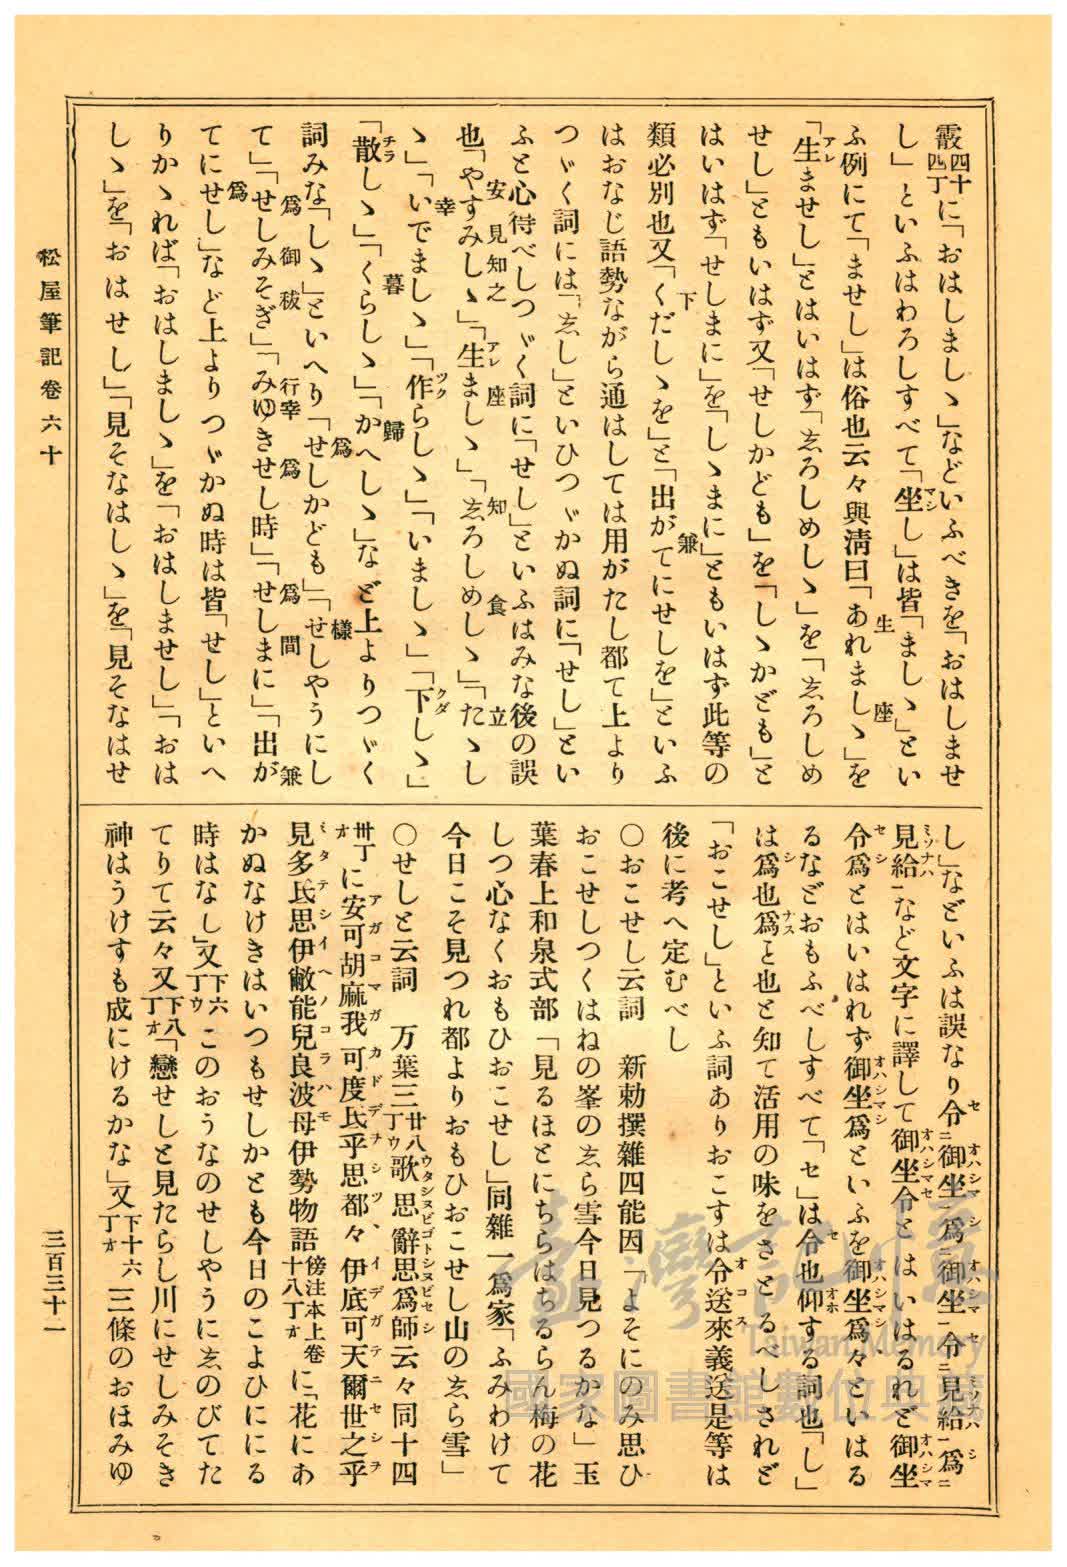 霰四十四丁に「おはしましゝ」などいふべきを「おはしませ
し」といふはわろしすべて「坐し」は皆「ましゝ」とい
ふ例にて「ませし」は俗也云々與淸曰「あれましゝ」を
「生ませし」とはいはず「志ろしめしゝ」を「志ろしめ
せし」ともいはず又「せしかども」を「しゝかども」と
はいはず「せしまに」を「しゝまに」ともいはず此等の
類必別也又「くだしゝを」と「出がてにせしを」といふ
はおなじ語勢ながら通はしては用がたし都て上より
つゞく詞には「志し」といひつゞかぬ詞に「せし」とい
ふと心得べしつゞく詞に「せし」といふはみな後の誤
也「やすみしゝ」「生ましゝ」「志ろしめしゝ」「たゝし
ゝ」「いでましゝ」「作らしゝ」「いましゝ」「下しゝ」
「散しゝ」「くらしゝ」「かへしゝ」など上よりつゞく
詞みな「しゝ」といへり「せしかども」「せしやうにし
て」「せしみそぎ」「みゆきせし時」「せしまに」「出が
てにせし」など上よりつゞかぬ時は皆「せし」といへ
りかゝれば「おはしましゝ」を「おはしませし」「おは
しゝ」を「おはせし」「見そなはしゝ」を「見そなはせ
し」などいふは誤なり令御坐爲御坐令見給爲
見給など文字に譯して御坐令とはいはるれど御坐
令爲とはいはれず御坐爲といふを御坐爲々といはる
るなどおもふべしすべて「セ」は令也仰する詞也「し」
は爲也爲と也と知て活用の味をさとるべしされど
「おこせし」といふ詞ありおこすは令送來義送是等は
後に考へ定むべし
〇おこせし云詞 新勅撰雜四能因「よそにのみ思ひ
おこせしつくはねの峯の志ら雪今日見つるかな」玉
葉春上和泉式部「見るほとにちらはちるらん梅の花
しつ心なくおもひおこせし」同雜一爲家「ふみわけて
今日こそ見つれ都よりおもひおこせし山の志ら雪」
〇せしと云詞 万葉三廿八丁ウ歌思辭思爲師云々同十四
卅丁オに安可胡麻我可度氐乎思都々伊底可天爾世之乎
見多氐思伊敝能兒良波母伊勢物語傍注本上卷十八丁オに「花にあ
かぬなけきはいつもせしかとも今日のこよひににる
時はなし」又下六丁ウこのおうなのせしやうに志のびてた
てりて云々又下八丁オ「戀せしと見たらし川にせしみそき
神はうけすも成にけるかな」又下十六丁オ三條のおほみゆ
松屋筆記卷六十
三百三十一
臺灣記憶
Taiwan Memory
國家圖書館數位典藏